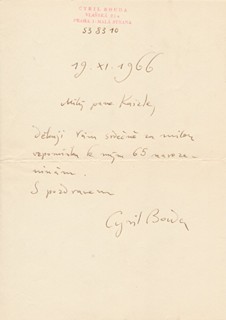 CYRIL BOUDA
19. XI. 1966
Milý pane
Děkuji Vám srdečně za milou
vzpomínku k mým 65 naroze-
ninám.
S pozdravem
Cyril Bouda